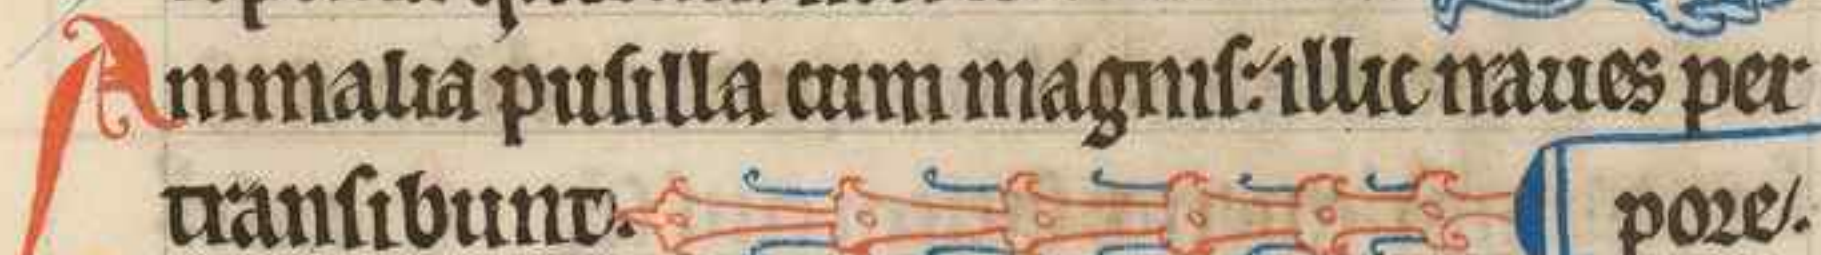 Animalia pusilla cum magnis: illic naues per
transibunt. pore/.